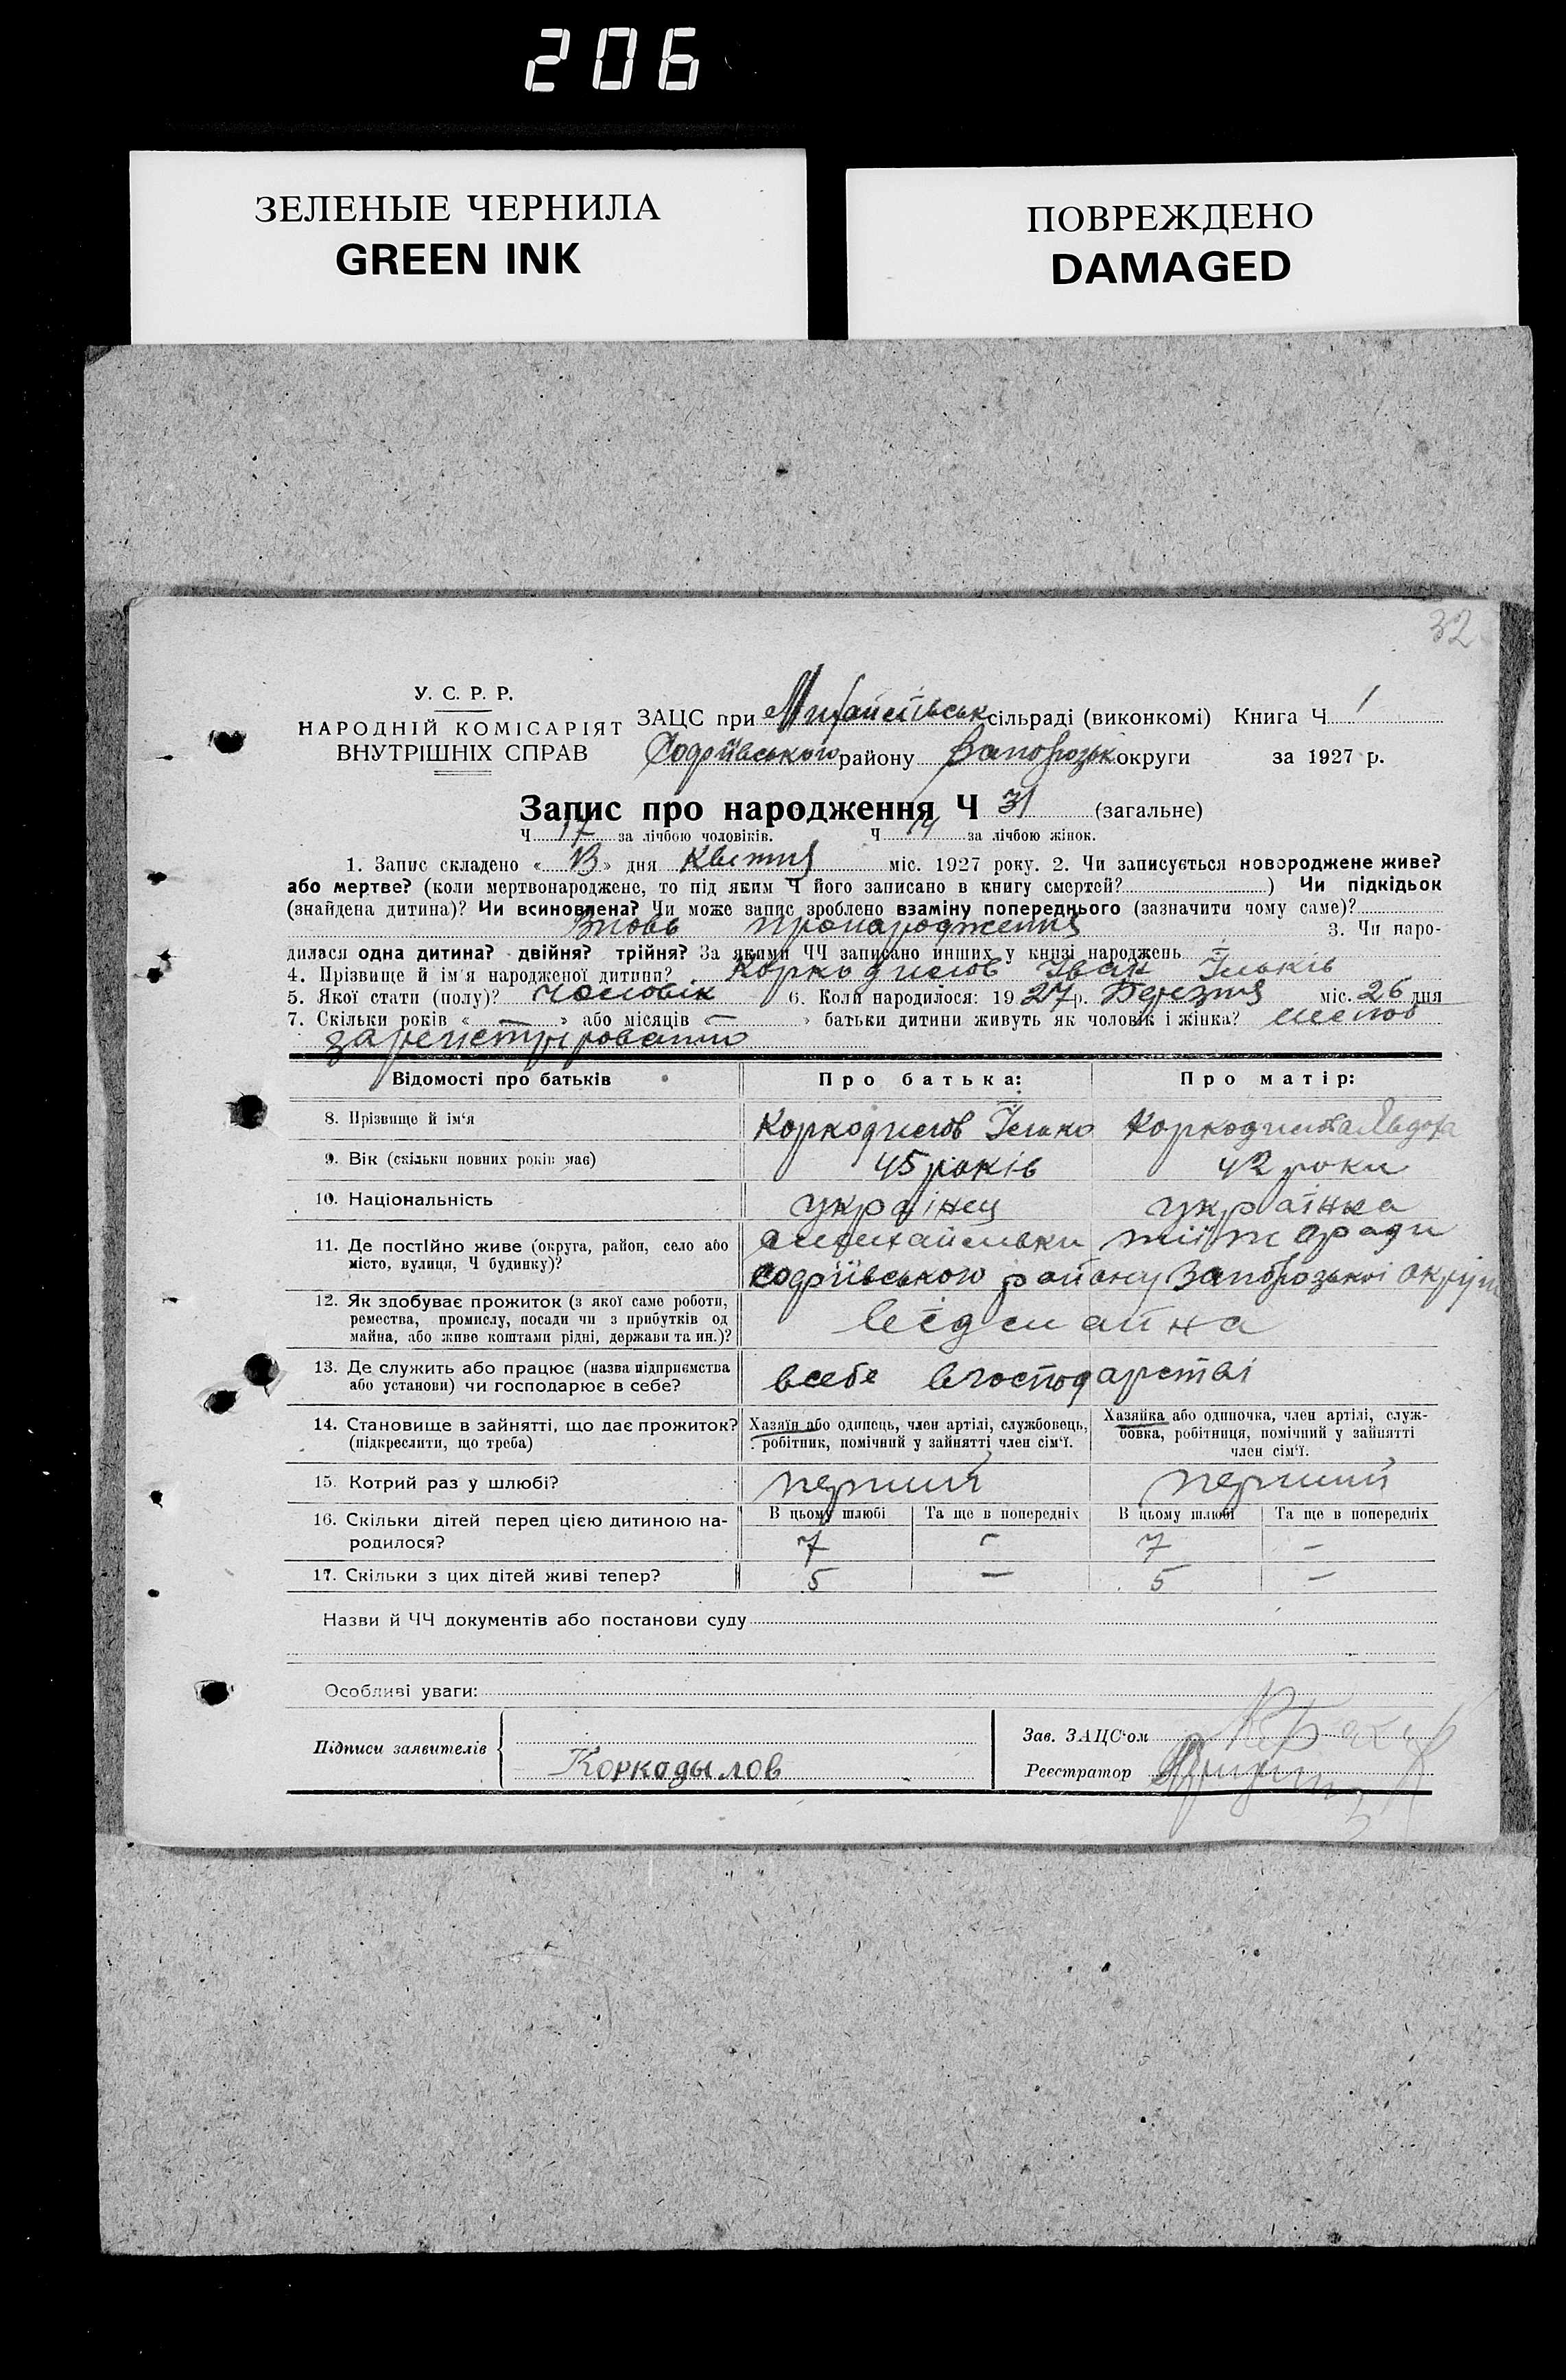 206
ЗЕЛЕНЫЕ ЧЕРНИЛА
GREEN INK
ПОВРЕЖДЕНО
DAMAGED
32
У. С. Р. Р.
НАРОДНІЙ КОМІСАРІЯТ
ВНУТРІШНІХ СПРАВ
ЗАЦС при Михайлівськ сільраді (виконкомі) Книга Ч 1
району Запорозьк округи за 1927 р.
Запис про народження Ч 31 (загальне)
Ч 17 за лічбою чоловіків. Ч 14 за лічбою жінок.
1. Запис складено « » дня Квітня міс. 1927 року. 2. Чи записується новороджене живе?
або мертве? (коли мертвонароджене, то під яким Ч його записано в книгу смертей? ) Чи підкідьок
(знайдена дитина)? Чи всиновлена? Чи може запис зроблено взаміну попереднього (зазначити чому саме)?
Вновь пронародження 3. Чи наро-
дилася одна дитина? двійня? трійня? За якими ЧЧ записано инших у книзі народжень
4. Прізвище й ім'я народженої дитини? Коркодилов Іван Ільків
5. Якої стати (полу)? чоловік 6. Коли народилося: 1927 р. Березня міс. 26 дня
7. Скільки років « — » або місяців « — » батьки дитини живуть як чоловік і жінка?
зарегистріровании
Відомості про батьків
Про батька:
Про матір:
8. Прізвище й ім'я
Коркодилов Ілько
Явдоха
9. Вік (скільки повних років має)
45 років
42 роки
10. Національність
українец
українка
11. Де постійно живе (округа, район, село або
місто, вулиця, Ч будинку)?
району Запорозької округи
12. Як здобуває прожиток (з якої саме роботи,
ремества, промислу, посади чи з прибутків од
майна, або живе коштами рідні, держави та ин.)?
13. Де служить або працює (назва підприємства
або установи) чи господарює в себе?
всебе вгосподарстві
14. Становище в зайнятті, що дає прожиток?
(підкреслити, що треба)
Хазяїн або одинець, член артілі, службовець,
робітник, помічний у зайнятті член сім'ї.
Хазяйка або одиночка, член артілі, служ-
бовка, робітниця, помічний у зайнятті
член сім'ї.
15. Котрий раз у шлюбі?
перший
перший
16. Скільки дітей перед цією дитиною на-
родилося?
В цьому шлюбі
Та ще в попередніх
В цьому шлюбі
Та ще в попередніх
7 – 7 –
17. Скільки з цих дітей живі тепер?
5 — 5 —
Назви й ЧЧ документів або постанови суду
Особливі уваги:
Підписи заявителів
Коркодылов
Зав. ЗАЦС'ом
Реєстратор